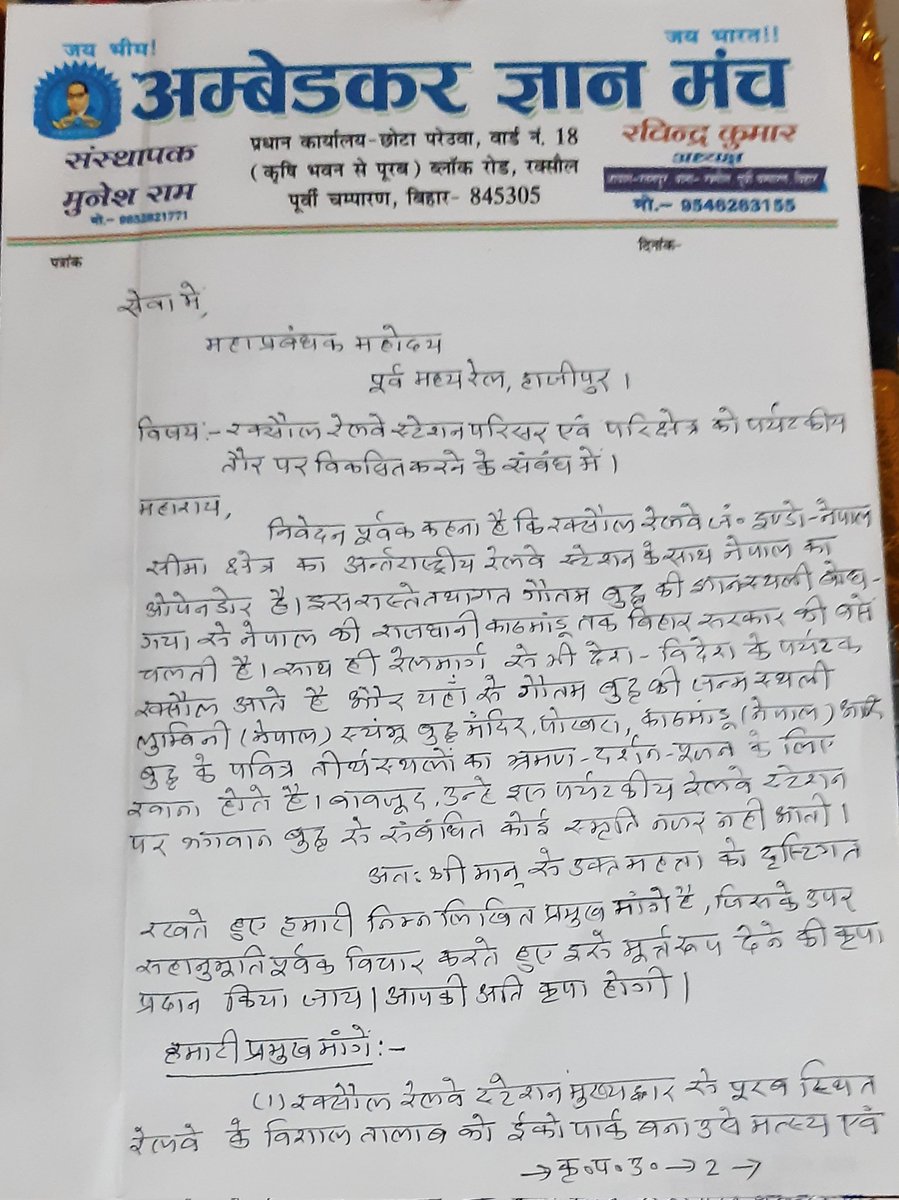 जय भीम!
जय भारत!!
अम्बेडकर ज्ञान मंच
संस्थापक
मुनेश राम
मो.- 9853821771
प्रधान कार्यालय-छोटा परेउवा, वार्ड नं. 18
(कृषि भवन से पूरब) ब्लॉक रोड, रक्सौल
पूर्वी चम्पारण, बिहार- 845305
रविन्द्र कुमार
अध्यक्ष
मो.- 9546263155
पत्रांक
दिनांक-
सेवा में,
महाप्रबंधक महोदय
पूर्व मध्य रेल, हाजीपुर ।
विषय:- रक्सौल रेलवे स्टेशन परिसर एवं परिक्षेत्र को पर्यटकीय
तौर पर विकसित करने के संबंध में ।
महाशय,
निवेदन पूर्वक कहना है कि रक्सौल रेलवे जं० इण्डो-नेपाल
सीमा क्षेत्र का अर्न्तराष्ट्रीय रेलवे स्टेशन के साथ नेपाल का
ओपेनडोर है। इस रास्ते तथागत गौतम बुद्ध की ज्ञानस्थली बोध-
गया से नेपाल की राजधानी काठमांडू तक बिहार सरकार की बसें
चलती है। साथ ही रेलमार्ग से भी देश-विदेश के पर्यटक
रक्सौल आते है और यहाँ से गौतम बुद्ध की जन्म स्थली
लुम्बिनी (नेपाल) स्यंभू बुद्ध मंदिर, पोखरा, काठमांडू (नेपाल) आदि
बुद्ध के पवित्र तीर्थस्थलों का भ्रमण-दर्शन-पूजन के लिए
रवाना होते है। बावजूद, उन्हे इस पर्यटकीय रेलवे स्टेशन
पर भगवान बुद्ध से संबंधित कोई स्मृति नजर नही आती।
अतः श्री मान् से उक्त महत्ता को दृष्टिगत
रखते हुए हमारी निम्नलिखित प्रमुख मांगे है, जिसके उपर
सहानुभूति पूर्वक विचार करते हुए इसे मूर्त्तरूप देने की कृपा
प्रदान किया जाय। आपकी अति कृपा होगी।
हमारी प्रमुख मांगें:-
(1) रक्सौल रेलवे स्टेशन मुख्यद्वार से पूरब स्थित
रेलवे के विशाल तालाब को ईको पार्क बना उसे मत्स्य एवं
→ कृ०प०उ० → 2 →